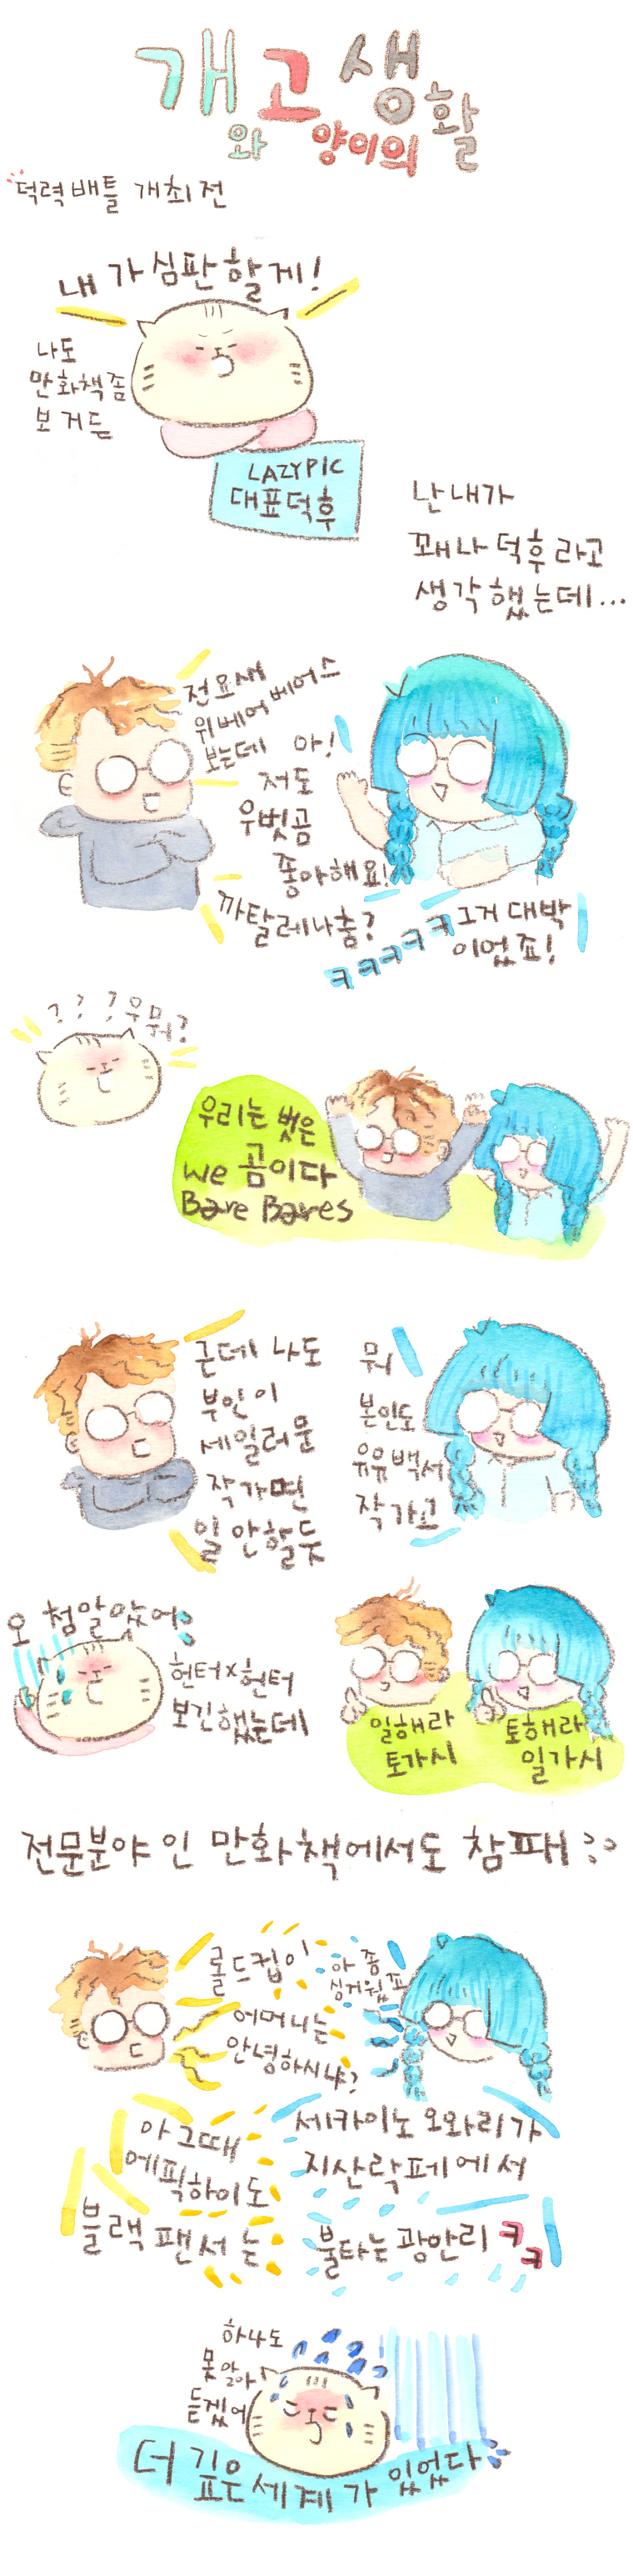 개와 고양이의 생활
덕력배틀 개최전
내가 심판할게!
나도
만화책좀
보거든
LAZYPIC
대표덕후
난 내가
꽤나 덕후라고
생각했는데...
전요새
위베어 베어스
보는데
아!
저도
우벗곰
좋아해요!
까탈레나춤?
ㅋㅋㅋㅋㅋ그거 대박
이었죠!
? ? ? 우뭐?
우리는 벗은
we 곰이다
Bare Bares
근데 나도
부인이
세일러문
작가면
일 안할듯
뭐
본인도
유유백서
작가고
오 첨알았어
헌터x헌터
보긴했는데
일해라
토가시
토해라
일가시
전문분야인 만화책에서도 참패
롤드컵이
아 좀
싱거웠죠
어머니는
안녕하시냐?
아 그때
에픽하이도
세카이노 오와리가
지산락페에서
블랙 팬서는
불타는 광안리 ㅋㅋ
하나도
못 알아
듣겠어
더 깊은 세계가 있었다